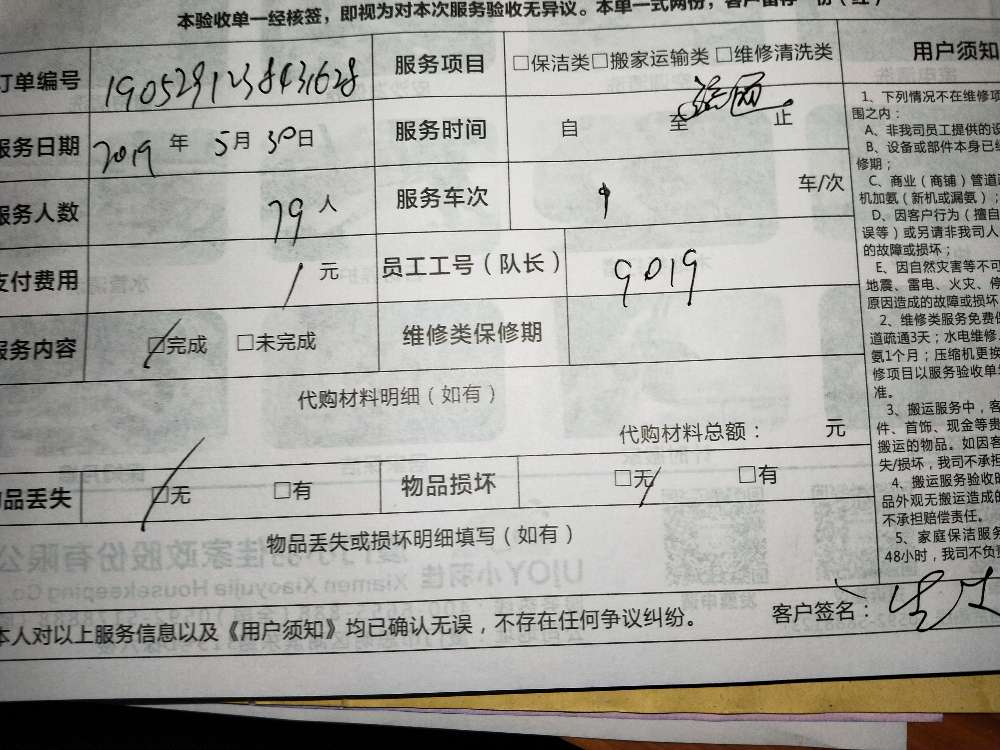 本验收单一经核签，即视为对本次服务验收无异议。本单一式两份，客户留存一份（红）
订单编号 1905291238431628 服务项目 □保洁类□搬家运输类 □维修清洗类 用户须知
服务日期 2019 年 5月 30日 服务时间 自 至 止
服务人数 79 人 服务车次 车/次
支付费用 元 员工工号（队长） 9019
服务内容 □完成 □未完成 维修类保修期
代购材料明细（如有）
代购材料总额： 元
物品丢失 □无 □有 物品损坏 □无 □有
物品丢失或损坏明细填写（如有）
本人对以上服务信息以及《用户须知》均已确认无误，不存在任何争议纠纷。 客户签名：
1、下列情况不在维修项
围之内：
A、非我司员工提供的设
B、设备或部件本身已经
修期；
C、商业（商铺）管道
机加氨（新机或漏氨）；
D、因客户行为（擅自
误等）或另请非我司人
的故障或损坏；
E、因自然灾害等不可
地震、雷电、火灾、停
原因造成的故障或损坏
2、维修类服务免费保
道疏通3天；水电维修
氨1个月；压缩机更换
修项目以服务验收单
准。
3、搬运服务中，客
件、首饰、现金等贵
搬运的物品。如因客
失/损坏，我司不承担
4、搬运服务验收时
品外观无搬运造成的
不承担赔偿责任。
5、家庭保洁服务
48小时，我司不负责